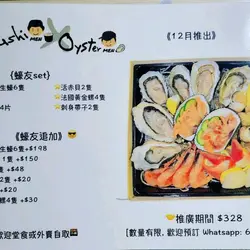 ushi MEN
Oyster MEN
《12月推出》
{蠔友set}
生蠔6隻
活赤貝2隻
隻
法國黃金螺4隻
4片
刺身帶子2隻
《蠔友追加》
生蠔6隻+$198
1隻 +$150
+$48
2隻 +$20
+$20
螺4隻 +$30
歡迎堂食或外賣自取
推廣期間 $328
[數量有限, 歡迎預訂 Whatsapp: 6